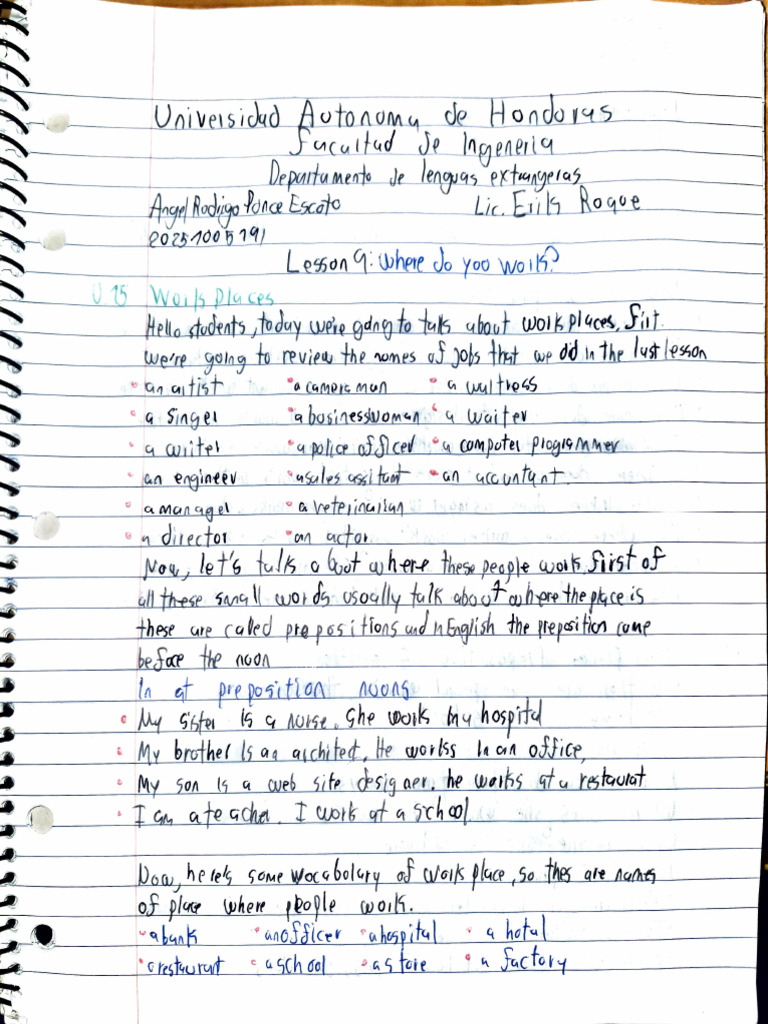 Universidad Autonoma de Honduras
Facultad de Ingeneria
Departamento de lenguas extrangeras
Angel Rodrigo Ponce Escoto Lic. Erik Roque
20251005191
Lesson 9: Where do you work?
U 15 Work places
Hello students, today we're going to talk about work places, first
we're going to review the names of jobs that we did in the last lesson
• an artist • a camera man • a waitress
• a singer • a businesswoman • a waiter
• a writer • a police officer • a computer programmer
• an engineer • a sales assitant • an accountant
• a manager • a veterinarian
• a director • an actor
Now, let's talk about where these people work, first of
all these small words usually talk about where the place is
these are called prepositions and in English the preposition come
before the noun
In at preposition nouns
• My sister is a nurse. She work in a hospital
• My brother is an architect. He works in an office,
• My son is a web site designer. he works at a restaurat
• I am a teacher. I work at a school

Now, here's some vocabolary of work place, so thes are names
of place where people work.
• a bank • an officer • a hospital • a hotal
• a restaurant • a school • a store • a factory